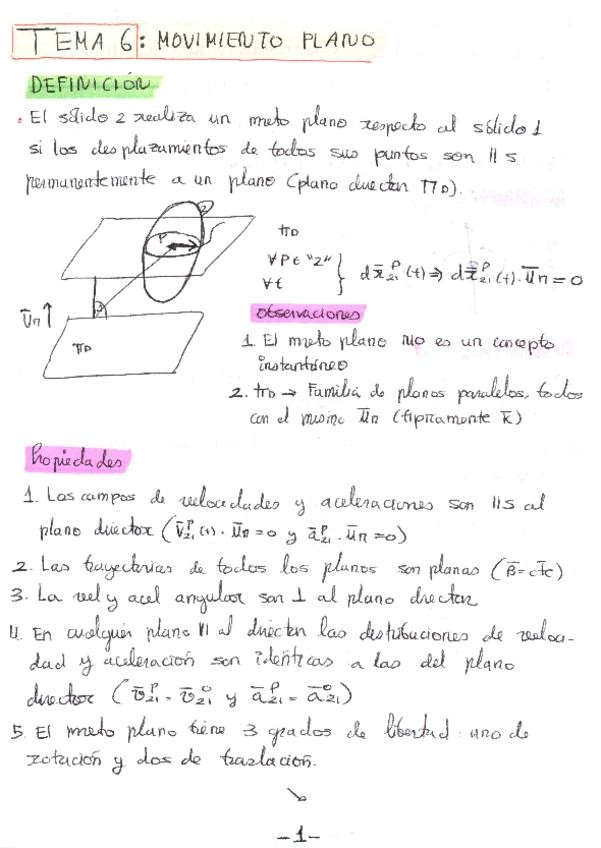 TEMA 6: MOVIMIENTO PLANO
DEFINICIÓN
• El sólido 2 realiza un mvto plano respecto al sólido 1
si los desplazamientos de todos sus puntos son || s
permanentemente a un plano (plano director ΠD).
2
P
ΠD
∀P ∈ "2"
∀t
} dx̄₂₁ᴾ(t) ⇒ dx̄₂₁ᴾ(t) · ūn = 0
ūn ↑
ΠD
Observaciones
1. El mvto plano NO es un concepto
instantáneo
2. ΠD → Familia de planos paralelos, todos
con el mismo ūn (típicamente k̄)
Propiedades
1. Los campos de velocidades y aceleraciones son ||s al
plano director (v̄₂₁ᴾ(t) · ūn = 0 y ā₂₁ᴾ · ūn = 0)
2. Las trayectorias de todos los planos son planas (B̄ = cte)
3. La vel y acel angular son ⊥ al plano director
4. En cualquier plano || al director las distribuciones de veloci-
dad y aceleración son idénticas a las del plano
director (v̄₂₁ᴾ = v̄₂₁ᴼ y ā₂₁ᴾ = ā₂₁ᴼ)
5. El mvto plano tiene 3 grados de libertad: uno de
rotación y dos de traslación.
-1-